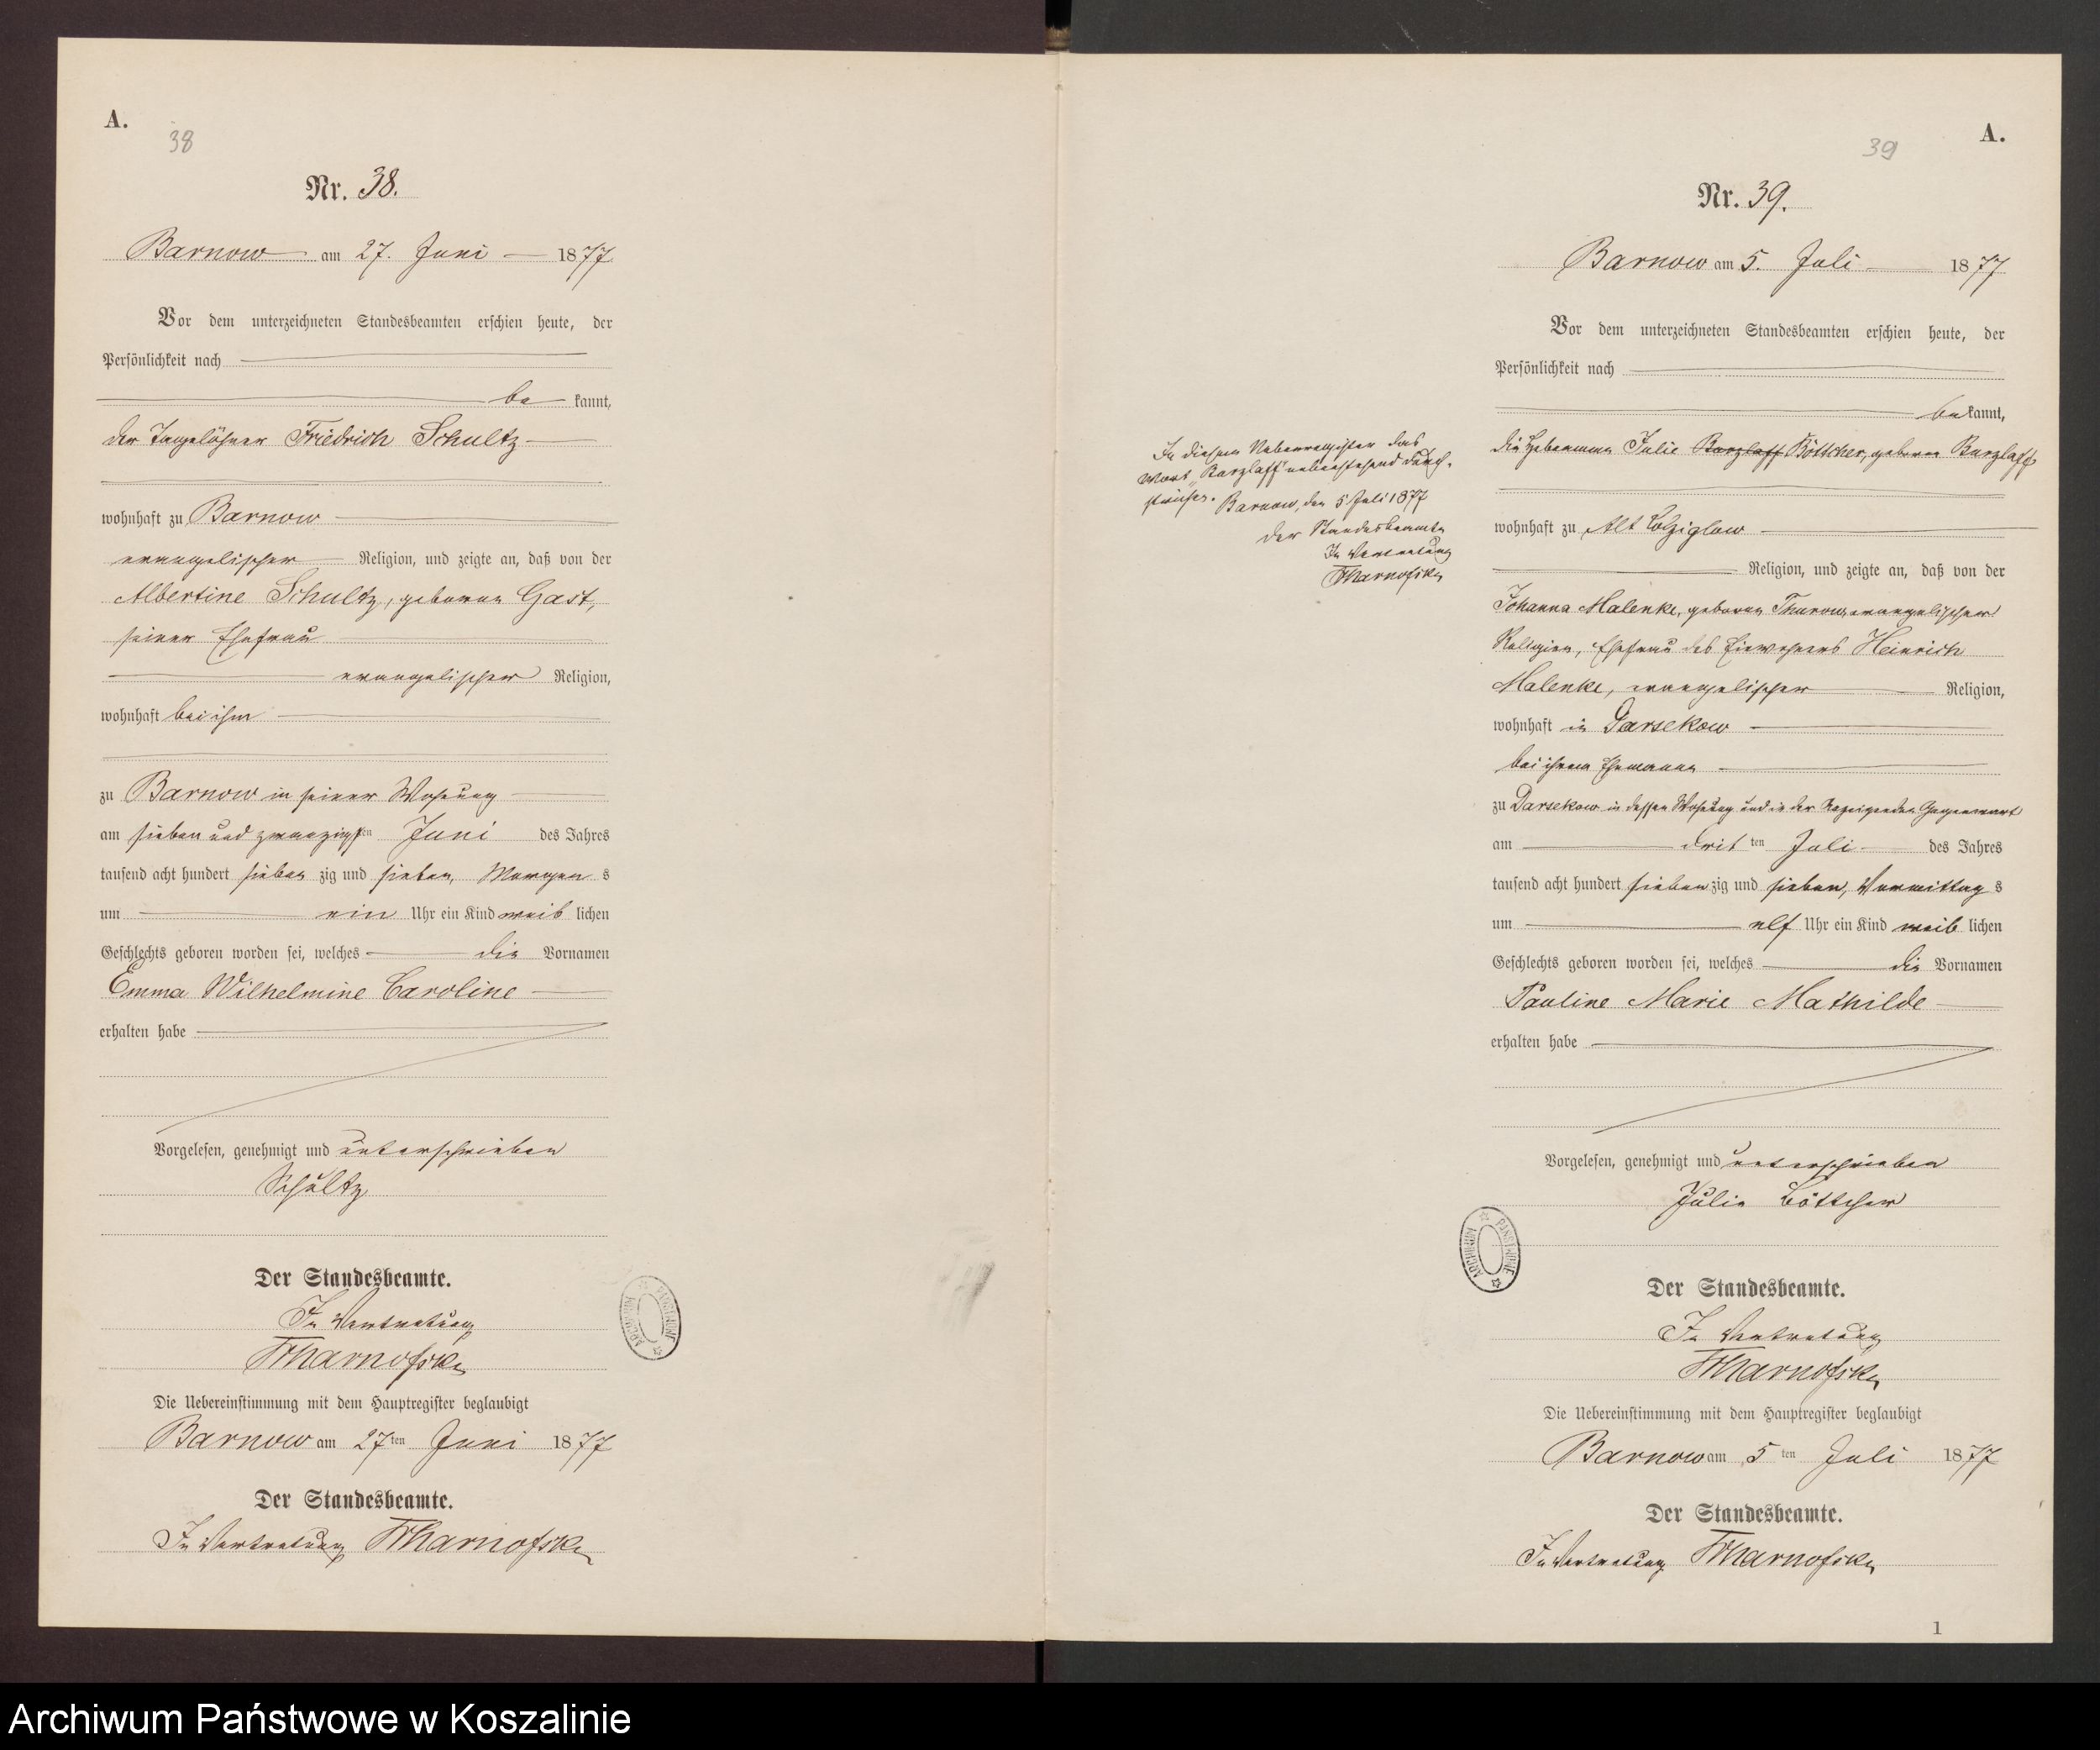 A.
38
Nr. 38.
Barnow am 27. Juni 1877
Vor dem unterzeichneten Standesbeamten erschien heute, der
Persönlichkeit nach
be kannt,
der Tagelöhner Friedrich Schultz
wohnhaft zu Barnow
evangelischer Religion, und zeigte an, daß von der
Albertine Schultz, geboren Gast,
seiner Ehefrau
evangelischer Religion,
wohnhaft bei ihm
zu Barnow in seiner Wohnung
am sieben und zwanzigsten Juni des Jahres
tausend acht hundert sieben zig und sieben, Morgen s
um ein Uhr ein Kind weib lichen
Geschlechts geboren worden sei, welches die Vornamen
Emma Wilhelmine Caroline
erhalten habe
Vorgelesen, genehmigt und unterschrieben
Schultz
Der Standesbeamte.
In Vertretung
Die Uebereinstimmung mit dem Hauptregister beglaubigt
Barnow am 27ten Juni 1877
Der Standesbeamte.
In Vertretung
ARCHIWUM PAŃSTWOWE
A.
39
Nr. 39.
Barnow am 5. Juli 1877
Vor dem unterzeichneten Standesbeamten erschien heute, der
Persönlichkeit nach
be kannt,
die Hebeamme Julie Barzlaff Böttcher, geboren Barzlaff
wohnhaft zu Alt Kolziglow
Religion, und zeigte an, daß von der
Johanna Malenke, geboren Thurow, evangelischer
Religion, Ehefrau des Einwohners Heinrich
Malenke, evangelischer Religion,
wohnhaft in Darsekow
bei ihrem Ehemanne
zu Darsekow in dessen Wohnung und in der Anzeigenden Gegenwart
am drit ten Juli des Jahres
tausend acht hundert sieben zig und sieben, Vormittag s
um elf Uhr ein Kind weib lichen
Geschlechts geboren worden sei, welches die Vornamen
Pauline Marie Mathilde
erhalten habe
Vorgelesen, genehmigt und unterschrieben
Julie Böttcher
Der Standesbeamte.
In Vertretung
Die Uebereinstimmung mit dem Hauptregister beglaubigt
Barnow am 5 ten Juli 1877
Der Standesbeamte.
In Vertretung
In diesem Nebenregister das
Wort "Barzlaff" nebenstehend durch-
strichen. Barnow, den 5 Juli 1877
Der Standesbeamte
In Vertretung
ARCHIWUM PAŃSTWOWE
1
Archiwum Państwowe w Koszalinie